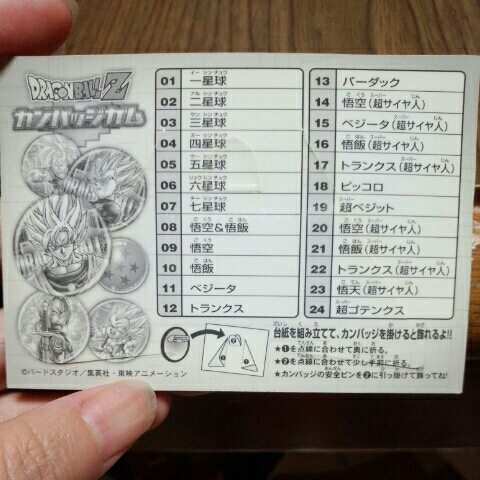 DRAGON BALL Z
カンバッジガム
01 一星球
02 二星球
03 三星球
04 四星球
05 五星球
06 六星球
07 七星球
08 悟空&悟飯
09 悟空
10 悟飯
11 ベジータ
12 トランクス
13 バーダック
14 悟空(超サイヤ人)
15 ベジータ(超サイヤ人)
16 悟飯(超サイヤ人)
17 トランクス(超サイヤ人)
18 ピッコロ
19 超ベジット
20 悟空(超サイヤ人)
21 悟飯(超サイヤ人)
22 トランクス(超サイヤ人)
23 悟天(超サイヤ人)
24 超ゴテンクス
台紙を組み立てて、カンバッジを掛けると飾れるよ!!
★❶を点線に合わせて奥に折る。
★❷を点線に合わせて少し手前に折る。
★カンバッジの安全ピンを❷に引っ掛けて飾ってね!
©バードスタジオ/集英社・東映アニメーション